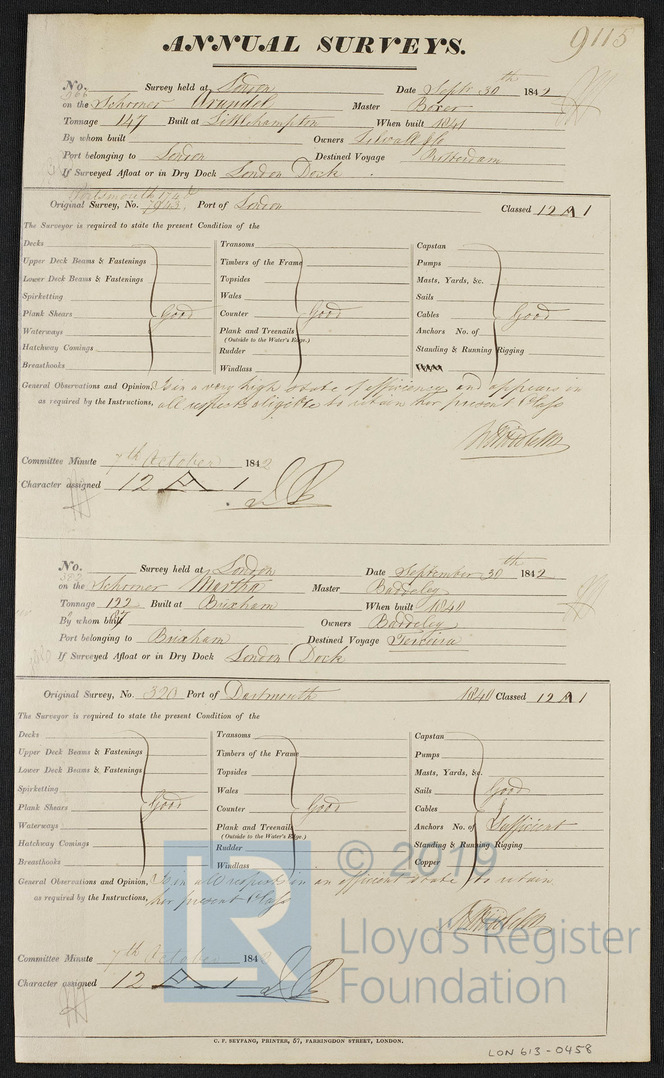 9115
ANNUAL SURVEYS.
No. Survey held at London Date Septr 30th 1842
on the Schooner Arundel Master Boxer
Tonnage 147 Built at Littlehampton When built 1841
By whom built Owners
Port belonging to London Destined Voyage Rotterdam
If Surveyed Afloat or in Dry Dock London Dock
Original Survey, No. 7943 Port of London Classed 12 A 1
The Surveyor is required to state the present Condition of the
Decks
Upper Deck Beams & Fastenings
Lower Deck Beams & Fastenings
Spirketting
Plank Shears Good
Waterways
Hatchway Comings
Breasthooks
Transoms
Timbers of the Frame
Topsides
Wales
Counter Good
Plank and Treenails
(Outside to the Water's Edge.)
Rudder
Windlass
Capstan
Pumps
Masts, Yards, &c.
Sails
Cables Good
Anchors No. of
Standing & Running Rigging
General Observations and Opinion, Is in a very high state of efficiency and appears in
as required by the Instructions, all respects eligible to retain her present Class
Committee Minute 7th October 1842
Character assigned 12 A 1
No. Survey held at London Date September 30th 1842
on the Schooner Martha Master Baddeley
Tonnage 122 Built at Brixham When built 1840
By whom built Owners Baddeley
Port belonging to Brixham Destined Voyage Terceira
If Surveyed Afloat or in Dry Dock London Dock
Original Survey, No. 320 Port of Dartmouth 1840 Classed 12 A 1
The Surveyor is required to state the present Condition of the
Decks
Upper Deck Beams & Fastenings
Lower Deck Beams & Fastenings
Spirketting
Plank Shears Good
Waterways
Hatchway Comings
Breasthooks
Transoms
Timbers of the Frame
Topsides
Wales
Counter Good
Plank and Treenails
(Outside to the Water's Edge.)
Rudder
Windlass
Capstan
Pumps
Masts, Yards, &c.
Sails Good
Cables
Anchors No. of Sufficient
Standing & Running Rigging
Copper
General Observations and Opinion, Is in all respects in an efficient state to retain
as required by the Instructions, her present Class
Committee Minute 7th October 1842
Character assigned 12 A 1
LR © 2019
Lloyd's Register
Foundation
C. F. SEYFANG, PRINTER, 57, FARRINGDON STREET, LONDON.
LON 613-0458